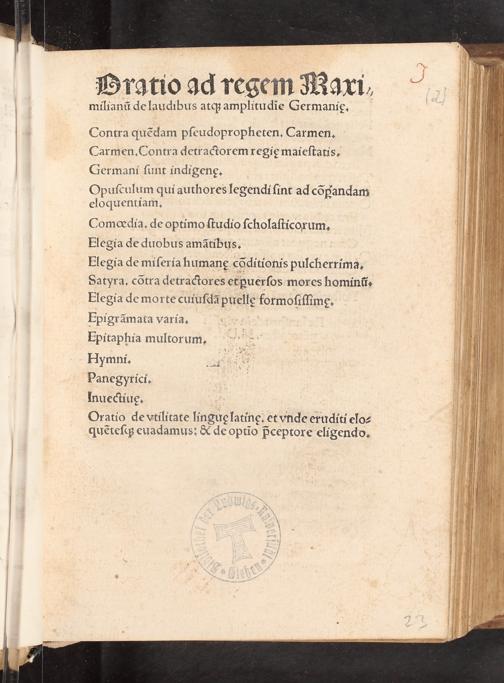 Oratio ad regem Maxi⸗
milianũ de laudibus atqꝫ amplitudĩe Germanię.
Contra quẽdam pſeudopropheten. Carmen.
Carmen. Contra detractorem regię maieſtatis.
Germani ſunt indigenę.
Opuſculum qui authores legendi ſint ad cõꝑandam
eloquentiam.
Comœdia. de optimo ſtudio ſcholaſticorum.
Elegia de duobus amãtibus.
Elegia de miſeria humanę cõditionis pulcherrima.
Satyra. cõtra detractores et ꝑuerſos mores hominũ.
Elegia de morte cuiuſdã puellę formoſiſſimę.
Epigrãmata varia.
Epitaphia multorum.
Hymni.
Panegyrici.
Inuectiuę.
Oratio de vtilitate linguę latinę. et vnde eruditi elo⸗
quẽteſqꝫ euadamus: & de optĩo p̃ceptore eligendo.
Bibliothek der Ludwigs-Universität Gießen
23